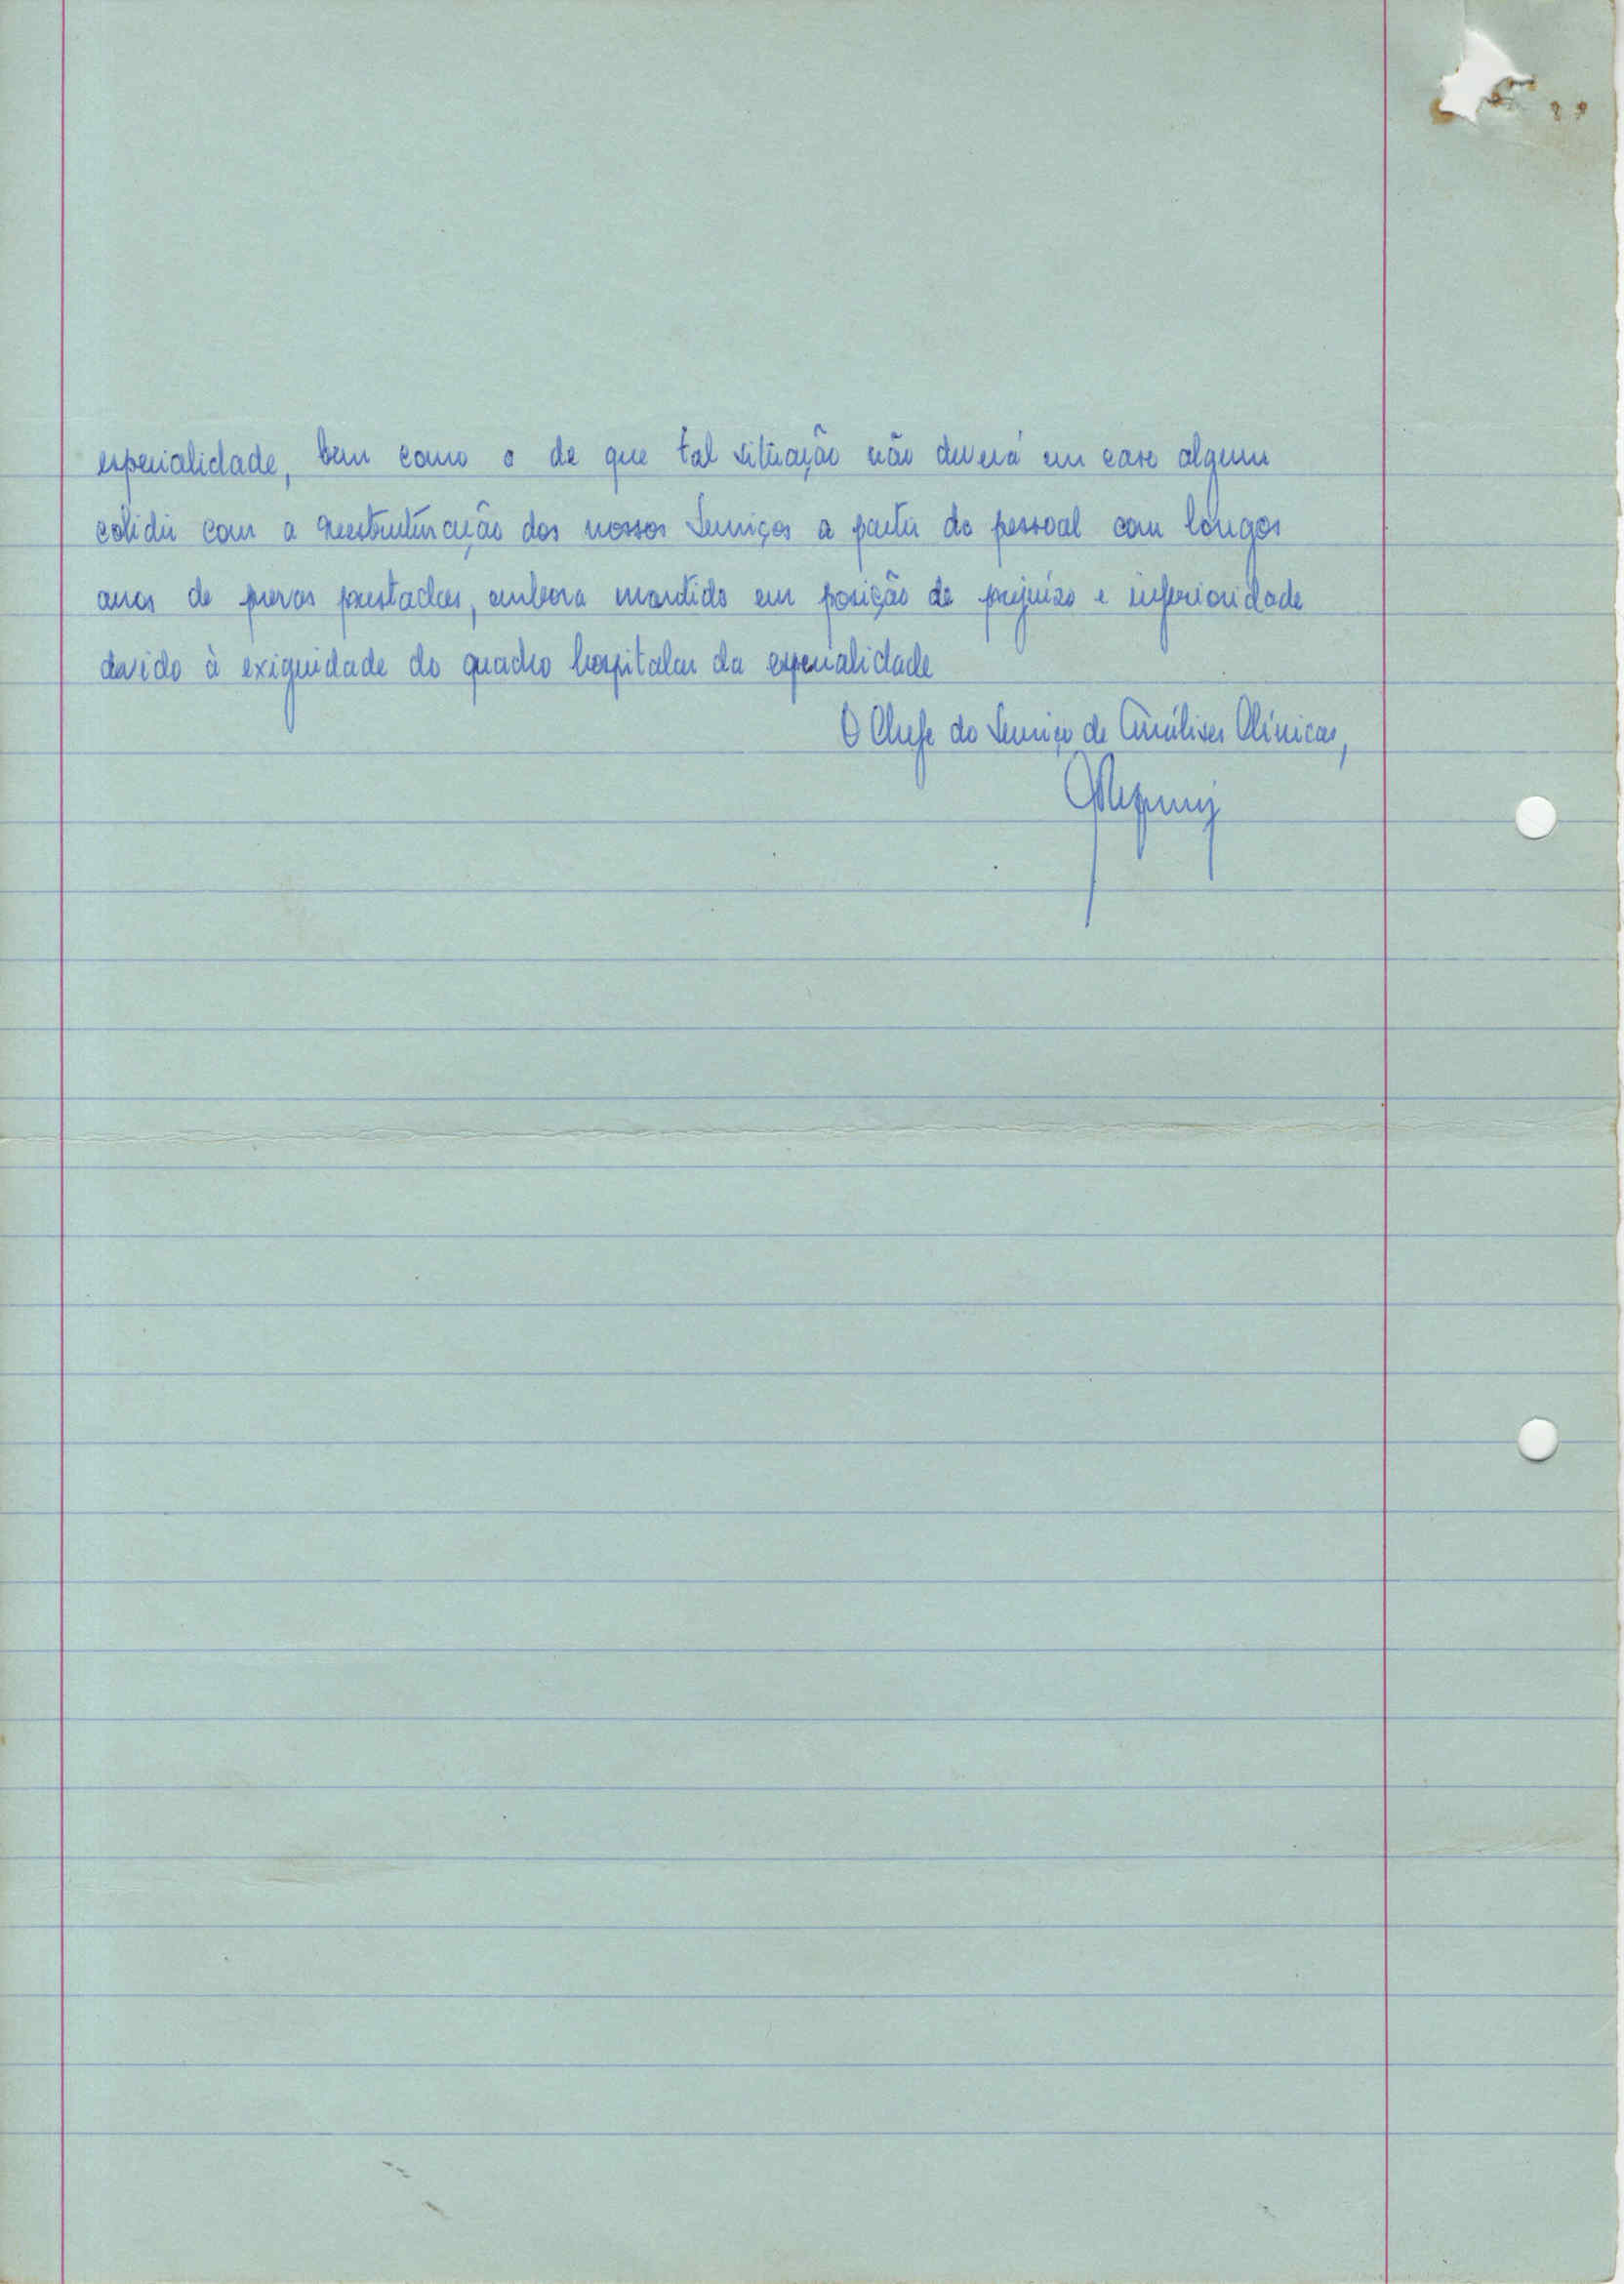 especialidade, bem como o de que tal situação não deverá em caso algum
colidir com a reestruturação dos nossos Serviços a partir do pessoal com longos
anos de provas prestadas, embora mantido em posição de prejuízo e inferioridade
devido à exiguidade do quadro hospitalar da especialidade
O Chefe do Serviço de Análises Clínicas,